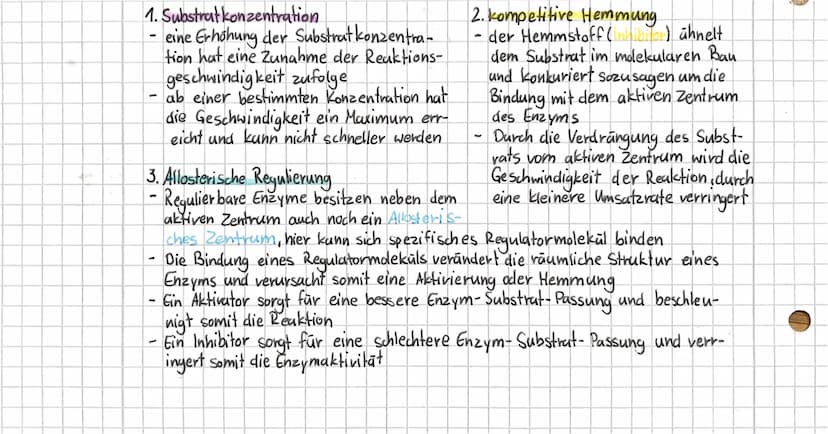 1. Substratkonzentration
- eine Erhöhung der Substratkonzentra-
tion hat eine Zunahme der Reaktions-
geschwindigkeit zufolge
- ab einer bestimmten Konzentration hat
die Geschwindigkeit ein Maximum err-
eicht und kann nicht schneller werden
2. kompetitive Hemmung
- der Hemmstoff (Inhibitor) ähnelt
dem Substrat im molekularen Bau
und konkuriert sozusagen um die
Bindung mit dem aktiven Zentrum
des Enzyms
- Durch die Verdrängung des Subst-
rats vom aktiven Zentrum wird die
Geschwindigkeit der Reaktion, durch
eine kleinere Umsatzrate verringert
3. Allosterische Regulierung
- Regulierbare Enzyme besitzen neben dem
aktiven Zentrum auch noch ein Allosteris-
ches Zentrum, hier kann sich spezifisches Regulatormolekül binden
- Die Bindung eines Regulatormoleküls verändert die räumliche Struktur eines
Enzyms und verursacht somit eine Aktivierung oder Hemmung
- Ein Aktivator sorgt für eine bessere Enzym-Substrat-Passung und beschleu-
nigt somit die Reaktion
- Ein Inhibitor sorgt für eine schlechtere Enzym-Substrat-Passung und verr-
ingert somit die Enzymaktivität